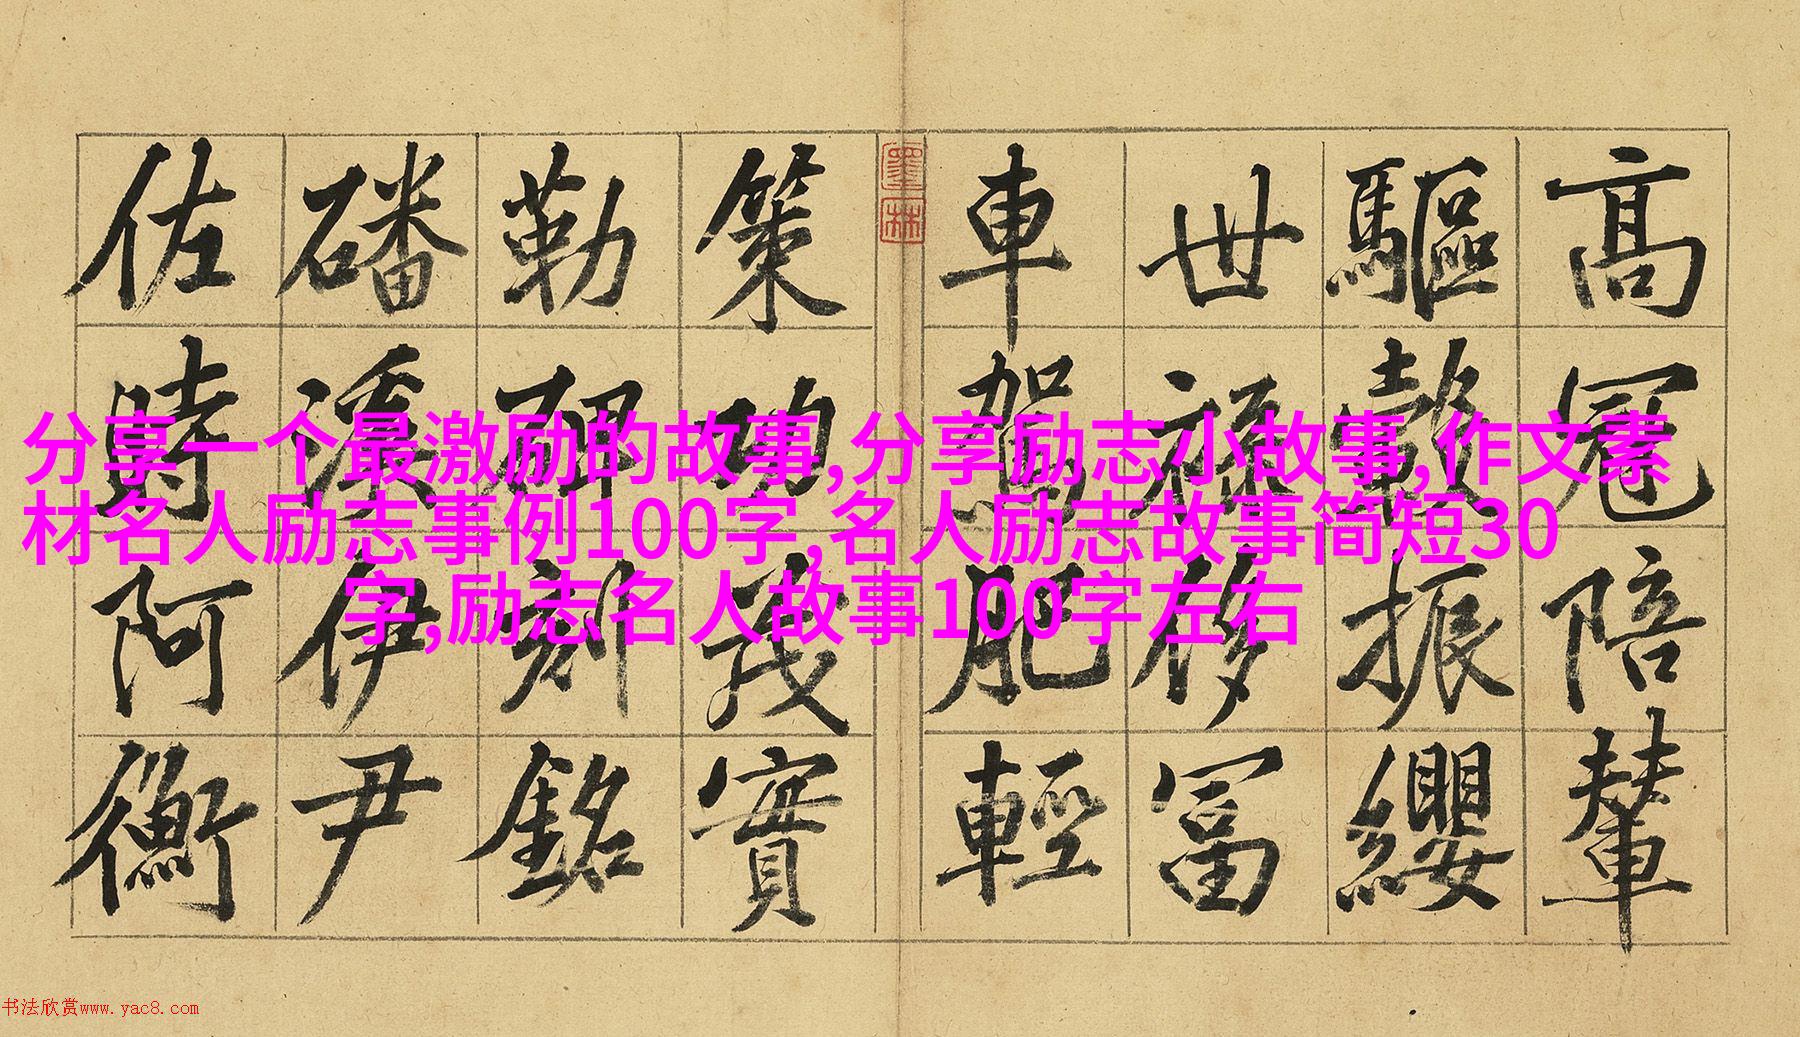 高冠陪輦
驅轂振纓
世祿侈冨
車駕肥輕
墨林
策功茂實
勒碑刻銘
磻溪伊尹
佐時阿衡
分享一个最激励的故事,分享励志小故事,作文素
材名人励志事例100字,名人励志故事简短30
字,励志名人故事100字左右
书法欣赏www.yac8.com